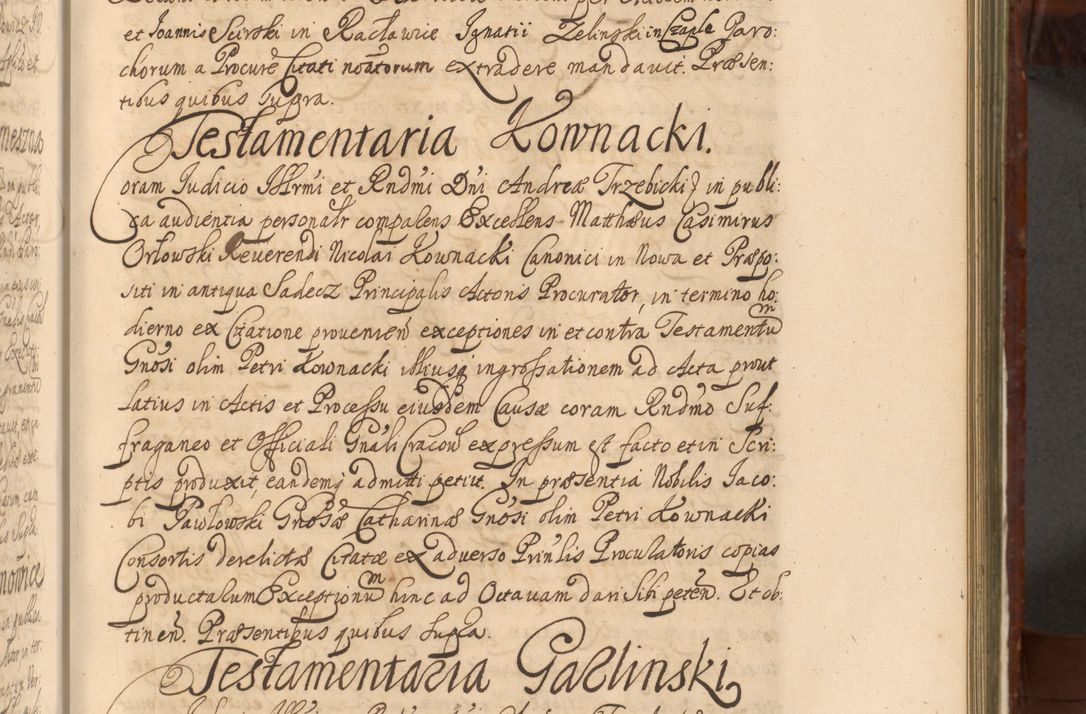 et Joannis Scirski in Racławice Ignatii Zelinski in Czaple Paro:
chorum a Procure Citati noatorum extradere mandavit. Præsen:
tibus quibus supra.
Testamentaria Kownacki.
Coram Judicio Illrmi et Rndmi Dni Andreæ Trzebicki in publi:
ca audientia personalr comparens Excellens Matthæus Casimirus
Orłowski Reverendi Nicolai Kownacki Canonici in Nowa et Præpo:
siti in antiqua Sadecz Principalis Actoris Procurator, in termino ho:
dierno ex Citatione provenien exceptiones in et contra Testamentum
Gnosi olim Petri Kownacki illiusq ingrossationem ad Acta prout
latius in Actis et Processu eiusdem Causæ coram Rndmo Suf:
fraganeo et Officiali Gnali Cracov expressum est facto et in Scri:
ptis produxit, eandemq admitti petiit. In præsentia Nobilis Jaco:
bi Pawłowski Gnosæ Catharinæ Gnosi olim Petri Kownacki
Consortis derelictæ Citatæ ex adverso Prinlis Procuratoris copias
productarum Exceptionum hinc ad Octavam dari sibi peten. Et ob:
tinen. Præsentibus quibus supra.
Testamentaria Garlinski